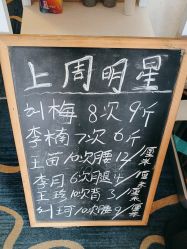 上周明星
刘梅 8次 9斤
李楠 7次 6斤
王苗 10次腰 12/厘米
李月 6次腿 4/厘米
王玲 10次背 3/厘米
刘珂 10次腰 9/厘米